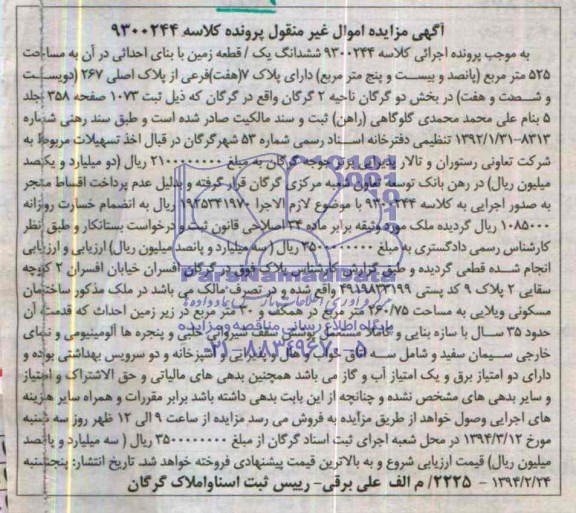 آگهی مزایده اموال غیر منقول پرونده کلاسه ۹۳۰۰۲۴۴
به موجب پرونده اجرائی کلاسه ۹۳۰۰۲۴۴ ششدانگ یک / قطعه زمین با بنای احداثی در آن به مساحت
۵۲۵ متر مربع (پانصد و بیست و پنج متر مربع) دارای پلاک ۷(هفت)فرعی از پلاک اصلی ۲۶۷ (دویست
و شصت و هفت) در بخش دو گرگان ناحیه ۲ گرگان واقع در گرگان که ذیل ثبت ۱۰۷۳ صفحه ۳۵۸ جلد
۵ بنام علی محمد محمدی گلوگاهی (راهن) ثبت و سند مالکیت صادر شده است و طبق سند رهنی شماره
۸۳۱۳-۱۳۹۲/۱/۳۱ تنظیمی دفترخانه اسناد رسمی شماره ۵۳ شهرگرگان در قبال اخذ تسهیلات مربوط به
شرکت تعاونی رستوران و تالار پذیرایی گرگان به مبلغ ۲۱۰۰۰۰۰۰۰۰ ریال (دو میلیارد و یکصد
میلیون ریال) در رهن بانک توسعه تعاون شعبه مرکزی گرگان قرار گرفته و بدلیل عدم پرداخت اقساط منجر
به صدور اجرایی به کلاسه ۹۳۰۰۲۴۴ با موضوع لازم الاجرا ۱۹۲۵۳۴۱۹۷۰ ریال به انضمام خسارت روزانه
۱۰۸۵۰۰۰ ریال گردیده ملک مورد وثیقه برابر ماده ۳۴ اصلاحی قانون ثبت و درخواست بستانکار و طبق نظر
کارشناس رسمی دادگستری به مبلغ ۳۵۰۰۰۰۰۰۰۰ ریال (سه میلیارد و پانصد میلیون ریال) ارزیابی و ارزیابی
انجام شده قطعی گردیده و طبق گزارش کارشناس پلاک فوق در گرگان افسران خیابان افسران ۲ کوچه
سقایی ۲ پلاک ۹ کد پستی ۴۹۱۹۸۳۳۱۹۹ واقع شده و در تصرف مالک می باشد در ملک مذکور ساختمان
مسکونی ویلایی به مساحت ۲۶۰/۷۵ متر مربع در همکف و ۳۰ متر مربع در زیر زمین احداث که قدمت آن
حدود ۳۵ سال با سازه بنایی و کاملا مستعمل پوشش سقف شیروانی حلبی و پنجره ها آلومینیومی و نمای
خارجی سیمان سفید و شامل سه اتاق خواب و هال و پذیرایی و آشپزخانه و دو سرویس بهداشتی بوده و
دارای دو امتیاز برق و یک امتیاز آب و گاز می باشد همچنین بدهی های مالیاتی و حق الاشتراک و امتیاز
و سایر بدهی های مشخص نشده و چنانچه از این بابت بدهی داشته باشد برابر مقررات و همراه سایر هزینه
های اجرایی وصول خواهد از طریق مزایده به فروش می رسد مزایده از ساعت ۹ الی ۱۲ ظهر روز سه شنبه
مورخ ۱۳۹۴/۳/۱۲ در محل شعبه اجرای ثبت اسناد گرگان از مبلغ ۳۵۰۰۰۰۰۰۰۰ ریال ( سه میلیارد و پانصد
میلیون ریال) قیمت ارزیابی شروع و به بالاترین قیمت پیشنهادی فروخته خواهد شد. تاریخ انتشار: پنجشنبه
۱۳۹۴/۲/۲۴ - ۲۲۲۵/ م الف علی برقی- رییس ثبت اسناواملاک گرگان
ParsNamadData
پایگاه اطلاع رسانی مناقصه و مزایده
۰۲۱-۸۸۳۴۹۶۷۰-۵